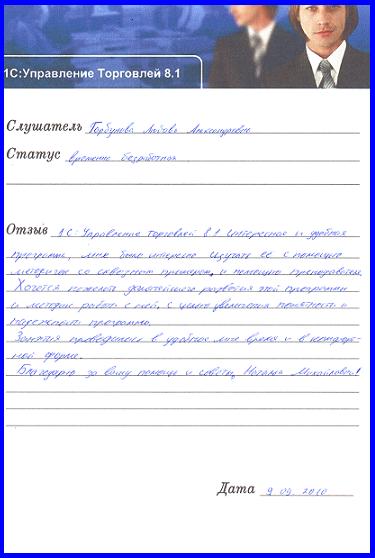 1С:Управление Торговлей 8.1
Слушатель Горбунова Любовь Александровна
Статус временно безработная
Отзыв 1С: Управление торговлей 8.1 интересная и удобная
программа, мне было интересно изучать ее с помощью
методички со сквозным примером, и помощью преподавателя.
Хочется пожелать дальнейшего развития этой программы
и методик работы с ней, с целью увеличения понятности и
надежности программы.
Занятия проводились в удобное мне время и в
ной форме.
Благодарю за вашу помощь и советы, Наталья Михайловна!
Дата 9.09.2010